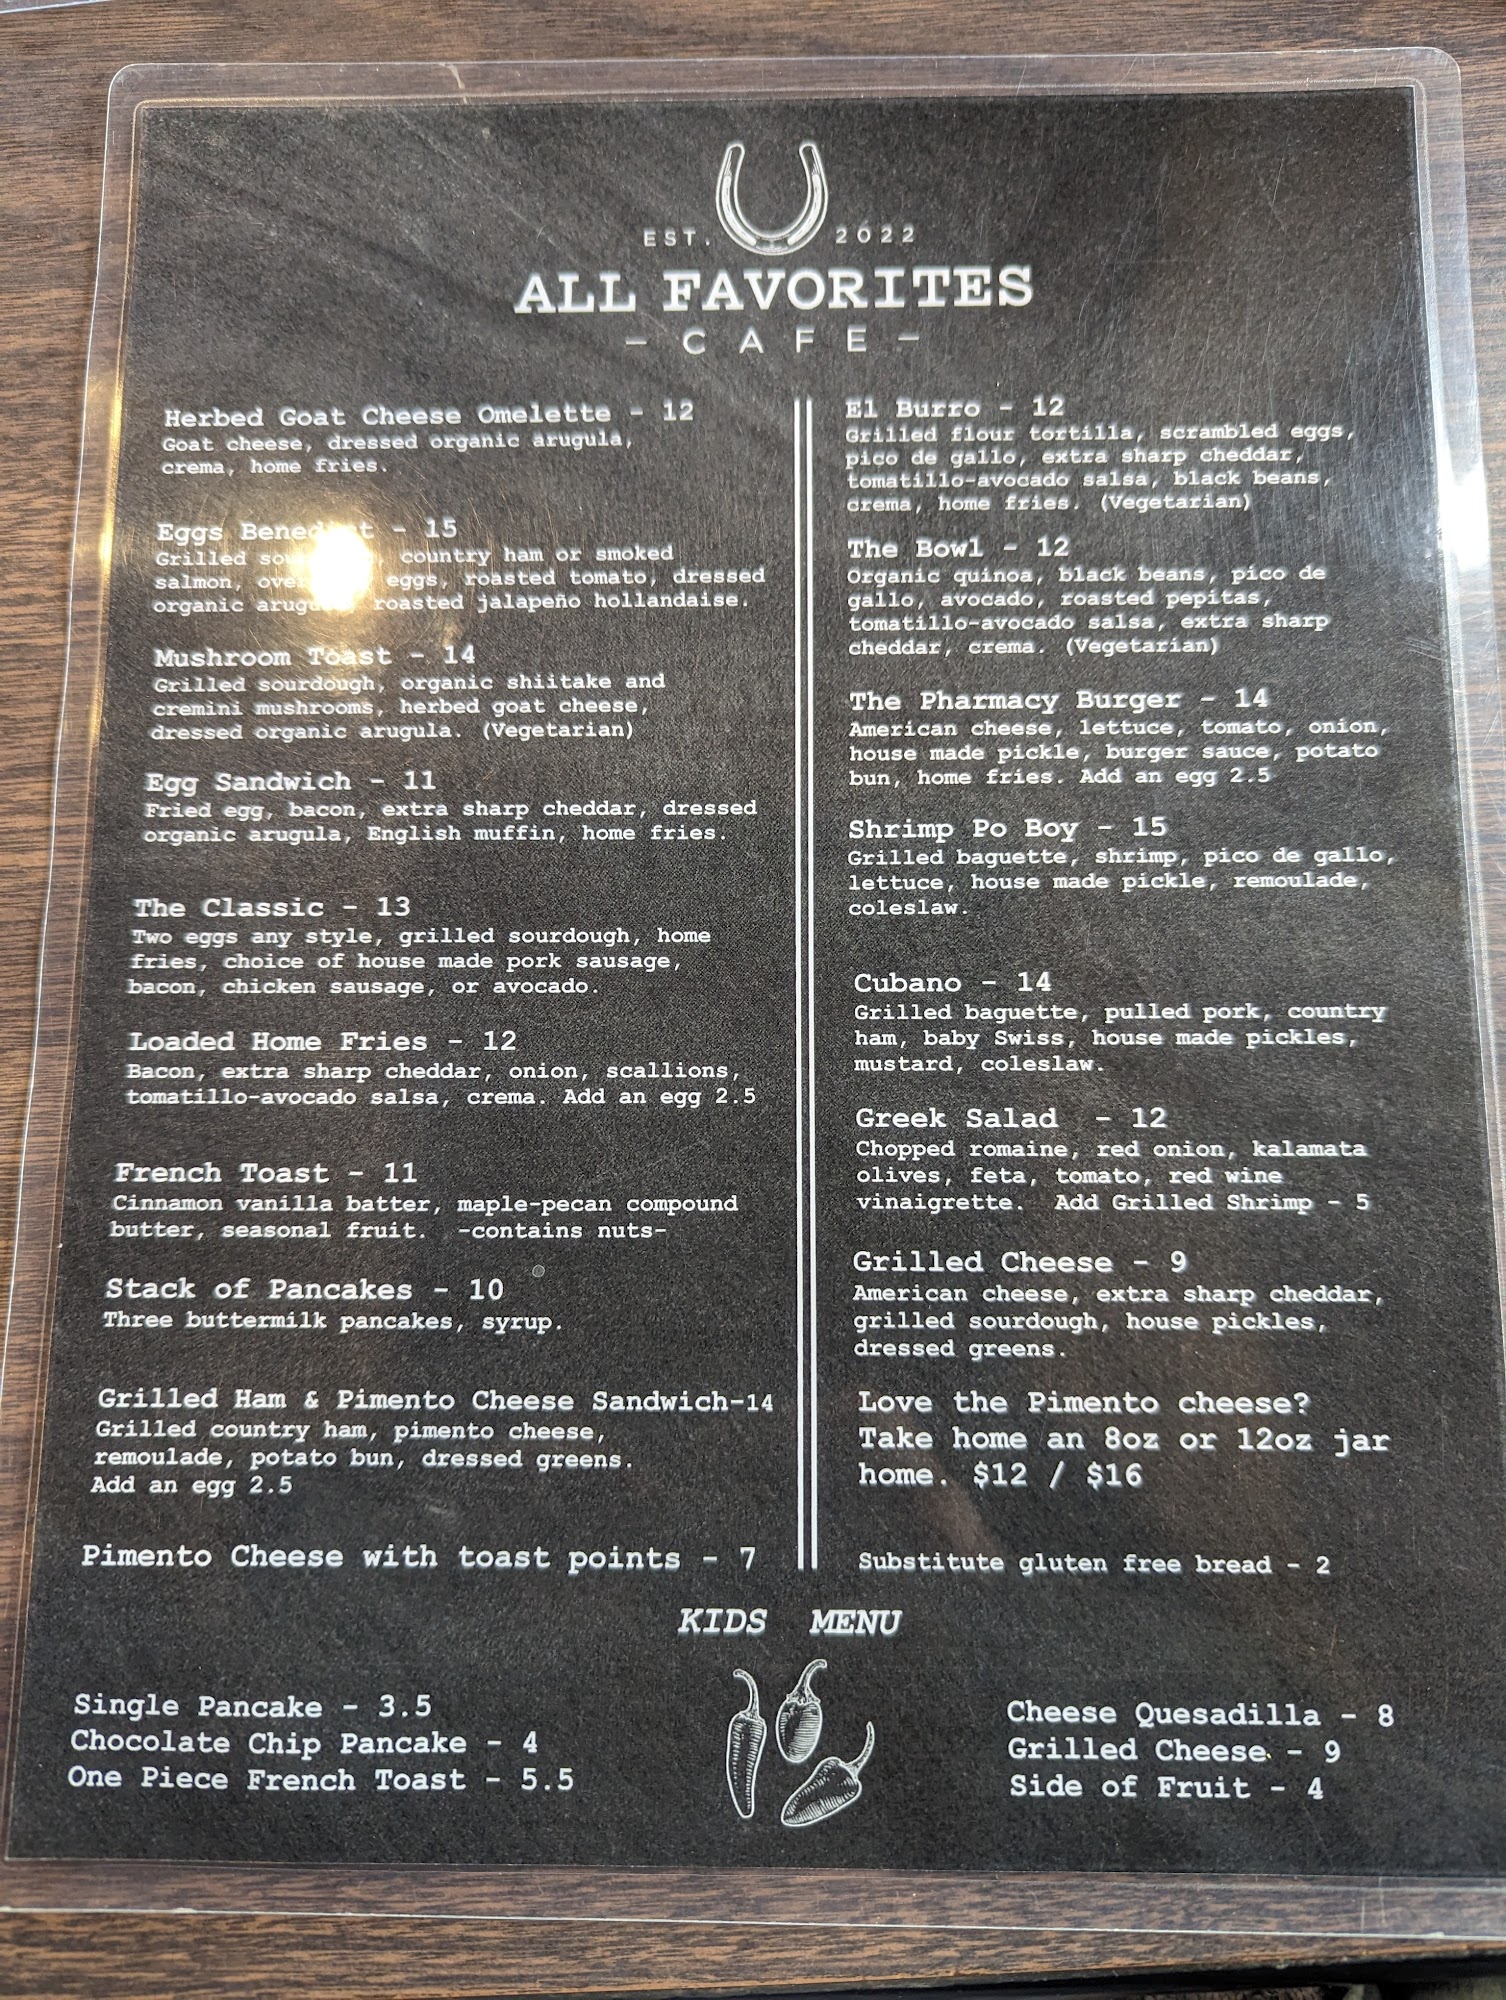 EST. 2022
ALL FAVORITES
- CAFE -
Herbed Goat Cheese Omelette - 12
Goat cheese, dressed organic arugula,
crema, home fries.
Eggs - 15
Grilled country ham or smoked
salmon, eggs, roasted tomato, dressed
organic roasted jalapeño hollandaise.
Mushroom Toast - 14
Grilled sourdough, organic shiitake and
cremini mushrooms, herbed goat cheese,
dressed organic arugula. (Vegetarian)
Egg Sandwich - 11
Fried egg, bacon, extra sharp cheddar, dressed
organic arugula, English muffin, home fries.
The Classic - 13
Two eggs any style, grilled sourdough, home
fries, choice of house made pork sausage,
bacon, chicken sausage, or avocado.
Loaded Home Fries - 12
Bacon, extra sharp cheddar, onion, scallions,
tomatillo-avocado salsa, crema. Add an egg 2.5
French Toast - 11
Cinnamon vanilla batter, maple-pecan compound
butter, seasonal fruit. -contains nuts-
Stack of Pancakes - 10
Three buttermilk pancakes, syrup.
Grilled Ham & Pimento Cheese Sandwich-14
Grilled country ham, pimento cheese,
remoulade, potato bun, dressed greens.
Add an egg 2.5
Pimento Cheese with toast points - 7
El Burro - 12
Grilled flour tortilla, scrambled eggs,
pico de gallo, extra sharp cheddar,
tomatillo-avocado salsa, black beans,
crema, home fries. (Vegetarian)
The Bowl - 12
Organic quinoa, black beans, pico de
gallo, avocado, roasted pepitas,
tomatillo-avocado salsa, extra sharp
cheddar, crema. (Vegetarian)
The Pharmacy Burger - 14
American cheese, lettuce, tomato, onion,
house made pickle, burger sauce, potato
bun, home fries. Add an egg 2.5
Shrimp Po Boy - 15
Grilled baguette, shrimp, pico de gallo,
lettuce, house made pickle, remoulade,
coleslaw.
Cubano - 14
Grilled baguette, pulled pork, country
ham, baby Swiss, house made pickles,
mustard, coleslaw.
Greek Salad - 12
Chopped romaine, red onion, kalamata
olives, feta, tomato, red wine
vinaigrette. Add Grilled Shrimp - 5
Grilled Cheese - 9
American cheese, extra sharp cheddar,
grilled sourdough, house pickles,
dressed greens.
Love the Pimento cheese?
Take home an 8oz or 12oz jar
home. $12 / $16
Substitute gluten free bread - 2
KIDS MENU
Single Pancake - 3.5
Chocolate Chip Pancake - 4
One Piece French Toast - 5.5
Cheese Quesadilla - 8
Grilled Cheese - 9
Side of Fruit - 4